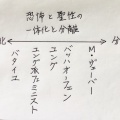 恐怖と聖性の
一体化と分離
北
分
M・ヴェーバー
バッハオーフェン
ユング
ユング派フェミニスト
バタイユ